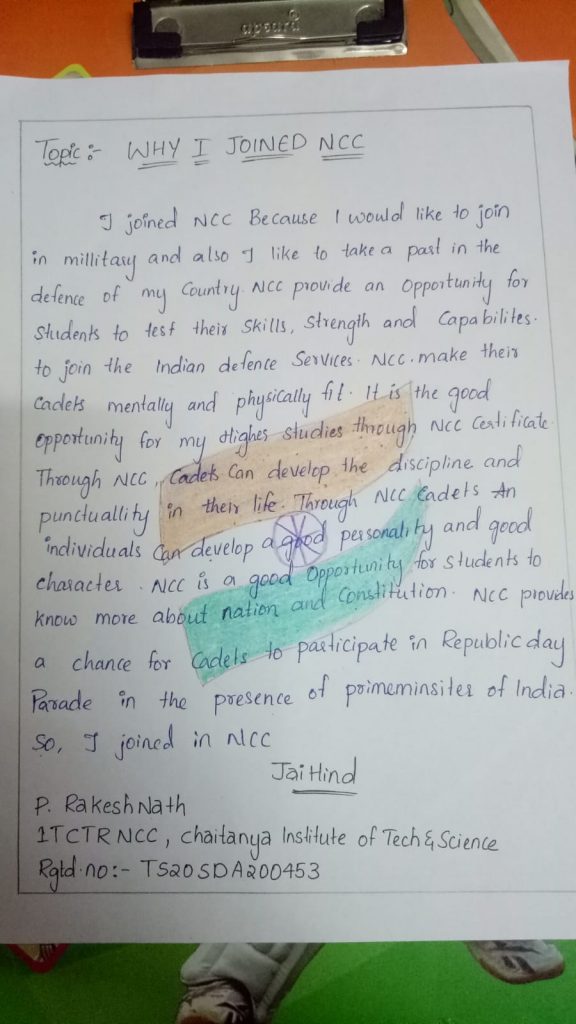 apsara
Topic:- WHY I JOINED NCC
I joined NCC Because I would like to join
in millitary and also I like to take a past in the
defence of my Country. NCC provide an opportunity for
students to test their skills, strength and Capabilites.
to join the Indian defence Services. NCC. make their
Cadets mentally and physically fit. It is the good
opportunity for my Highes studies through NCC Certificate.
Through NCC, Cadets Can develop the discipline and
punctuallity in their life. Through NCC Cadets An
individuals Can develop a good personality and good
character. NCC is a good opportunity for students to
know more about nation and Constitution. NCC provides
a chance for Cadets to participate in Republic day
Parade in the presence of primeminsiter of India.
So, I joined in NCC
Jai Hind
P. Rakesh Nath
1TCTR NCC, chaitanya Institute of Tech & Science
Rgtd.no:- TS20SDA200453